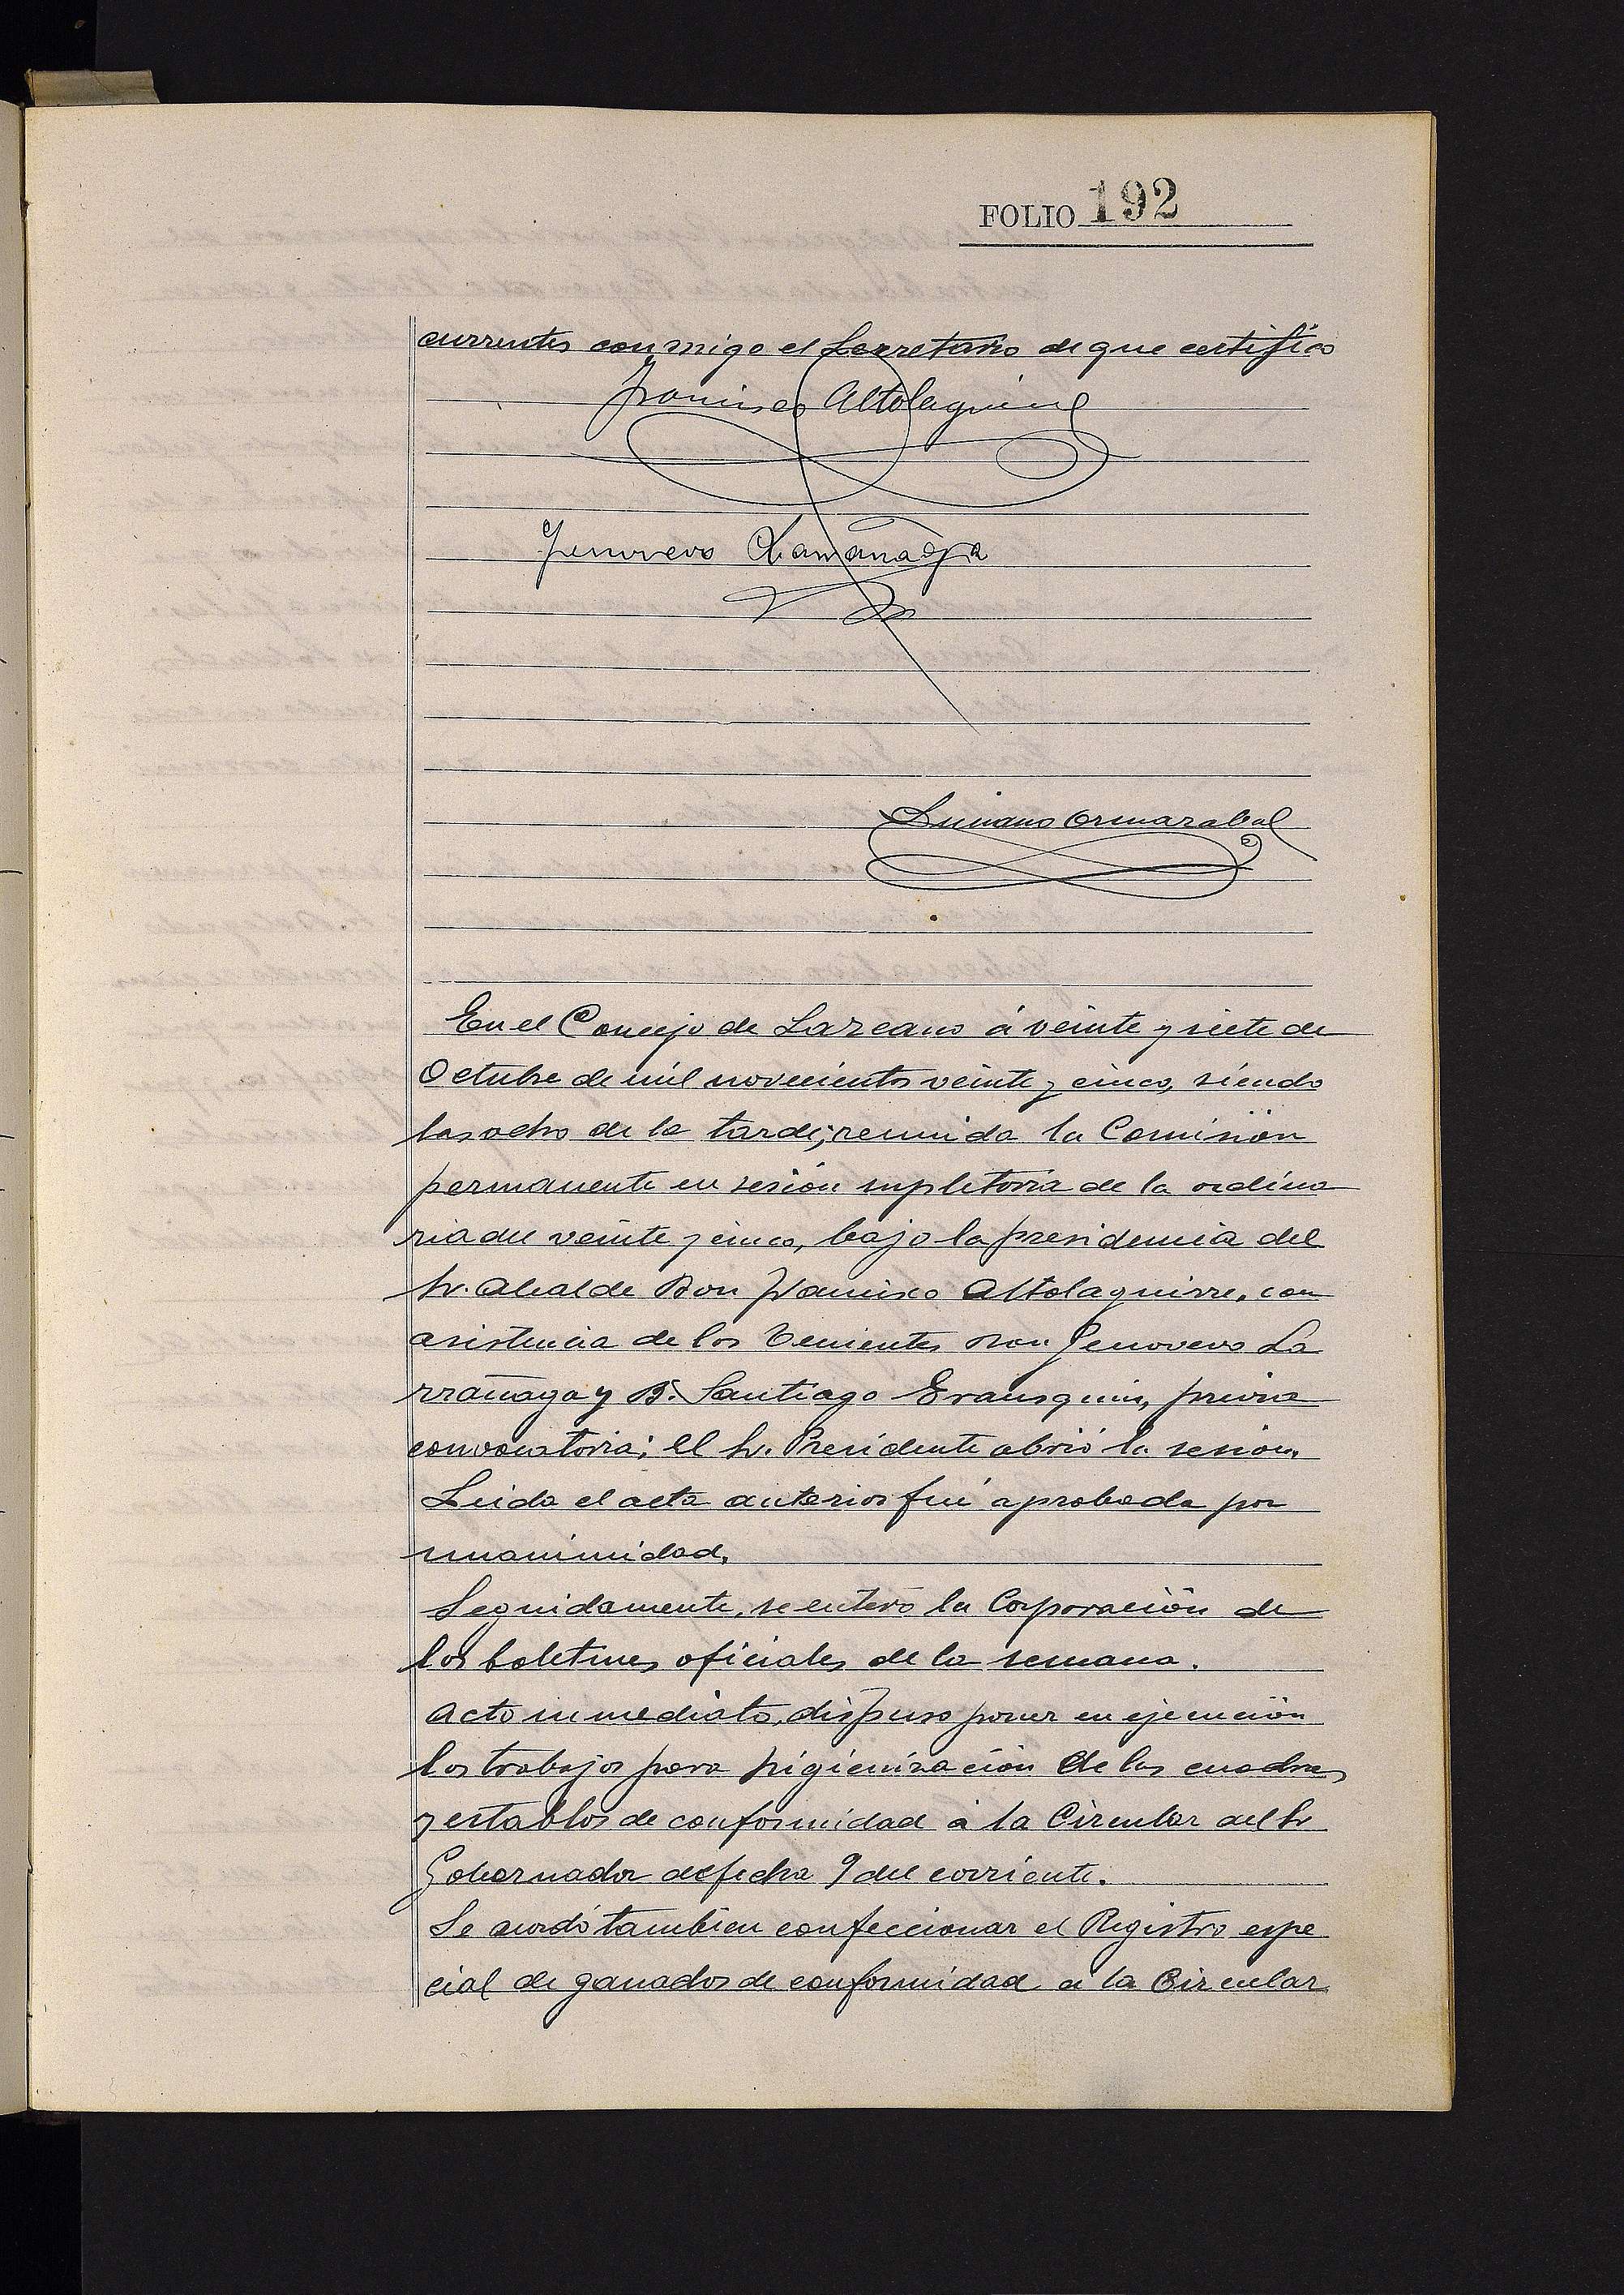 FOLIO 192
currentes conmigo el Secretario de que certifico
Francisco Altolaguirre
Genovevo Larrañaga
Luciano Ormazabal
En el Concejo de Lazcano á veinte y siete de
Octubre de mil novecientos veinte y cinco, siendo
las ocho de la tarde; reunida la Comisión
permanente en sesión supletoria de la ordina
ria del veinte y cinco, bajo la presidencia del
Sr. Alcalde Don Francisco Altolaguirre, con
asistencia de los Tenientes Don Genovevo La
rrañaga y D. Santiago Erausquin, previa
convocatoria; el Sr. Presidente abrió la sesión.
Leida el acta anterior fué aprobada por
unanimidad.
Seguidamente, se enteró la Corporación de
los boletines oficiales de la semana.
Acto inmediato, dispuso poner en ejecución
los trabajos para higienización de las cuadras
y establos de conformidad á la Circular del Sr
Gobernador de fecha 9 del corriente.
Se acordó tambien confeccionar el Registro espe
cial de ganados de conformidad a la Circular